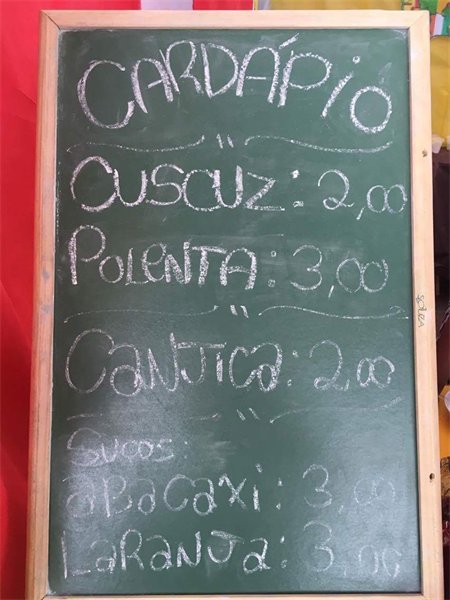 CARDÁPIO
CUSCUZ: 2,00
POLENTA: 3,00
CANJICA: 2,00
SUCOS:
ABACAXI: 3,00
LARANJA: 3,00